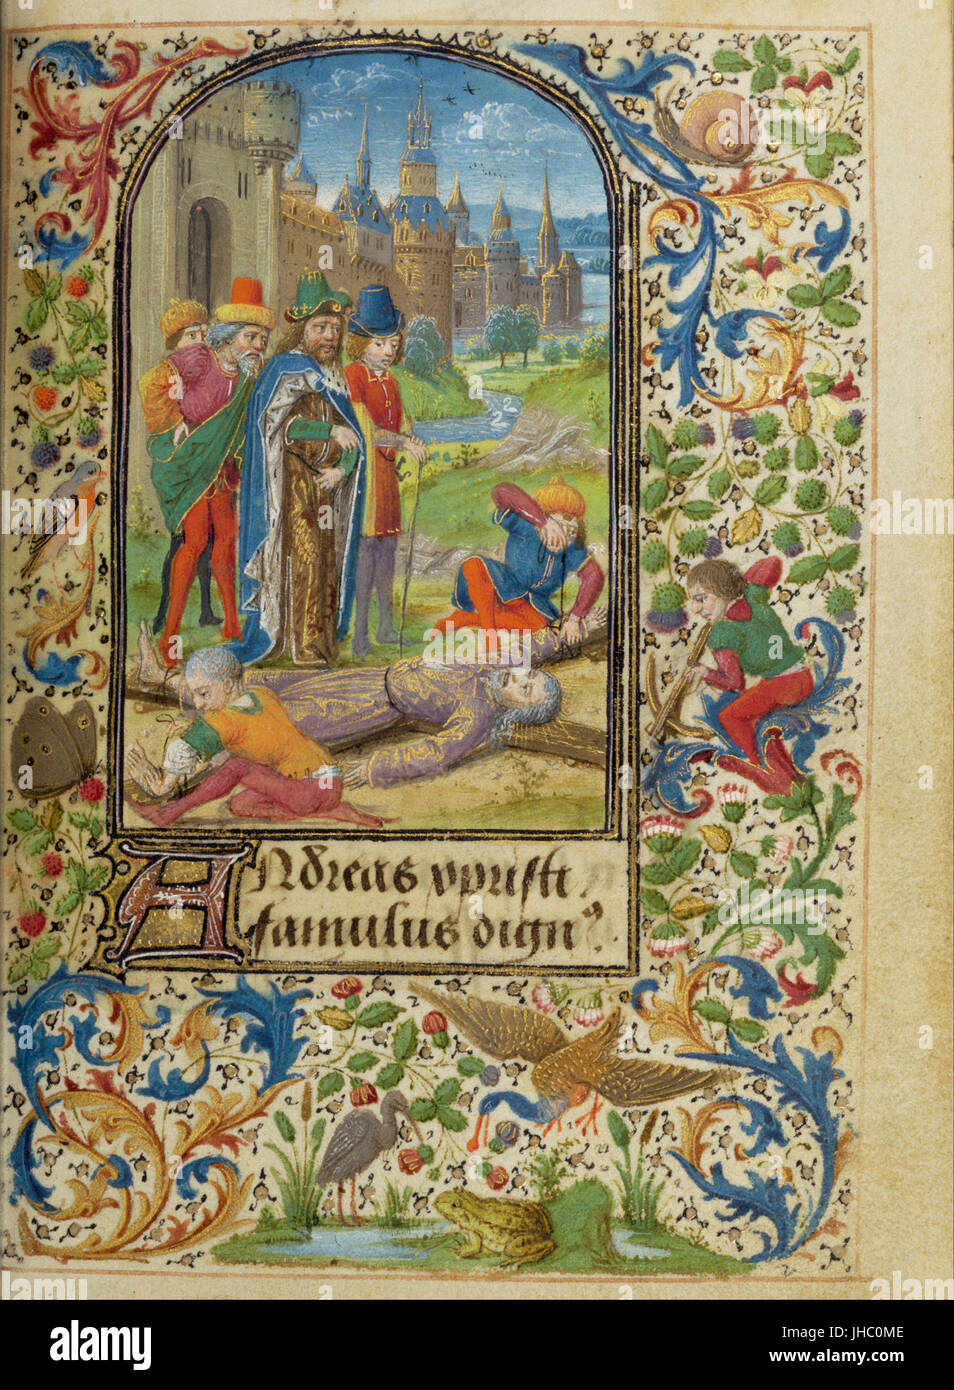 Andreas xpristi
famulus dign⁹.
alamy
Image ID: JHC0ME
www.alamy.com